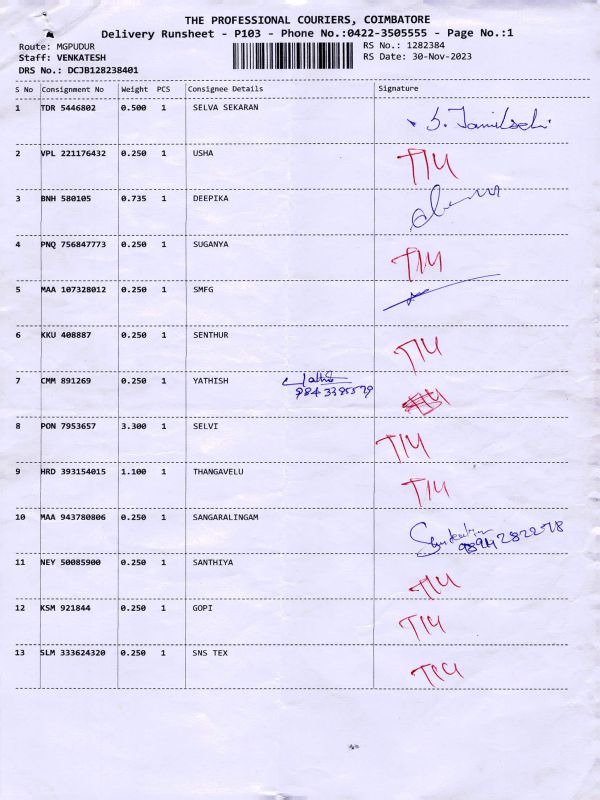 THE PROFESSIONAL COURIERS, COIMBATORE
Delivery Runsheet - P103 - Phone No.:0422-3505555 - Page No.:1
Route: MGPUDUR RS No.: 1282384
Staff: VENKATESH RS Date: 30-Nov-2023
DRS No.: DCJB128238401
S No Consignment No Weight PCS Consignee Details Signature
1 TDR 5446802 0.500 1 SELVA SEKARAN
2 VPL 221176432 0.250 1 USHA
3 BNH 580105 0.735 1 DEEPIKA
4 PNQ 756847773 0.250 1 SUGANYA
5 MAA 107328012 0.250 1 SMFG
6 KKU 408887 0.250 1 SENTHUR
7 CMM 891269 0.250 1 YATHISH
8 PON 7953657 3.300 1 SELVI
9 HRD 393154015 1.100 1 THANGAVELU
10 MAA 943780806 0.250 1 SANGARALINGAM
11 NEY 50085900 0.250 1 SANTHIYA
12 KSM 921844 0.250 1 GOPI
13 SLM 333624320 0.250 1 SNS TEX